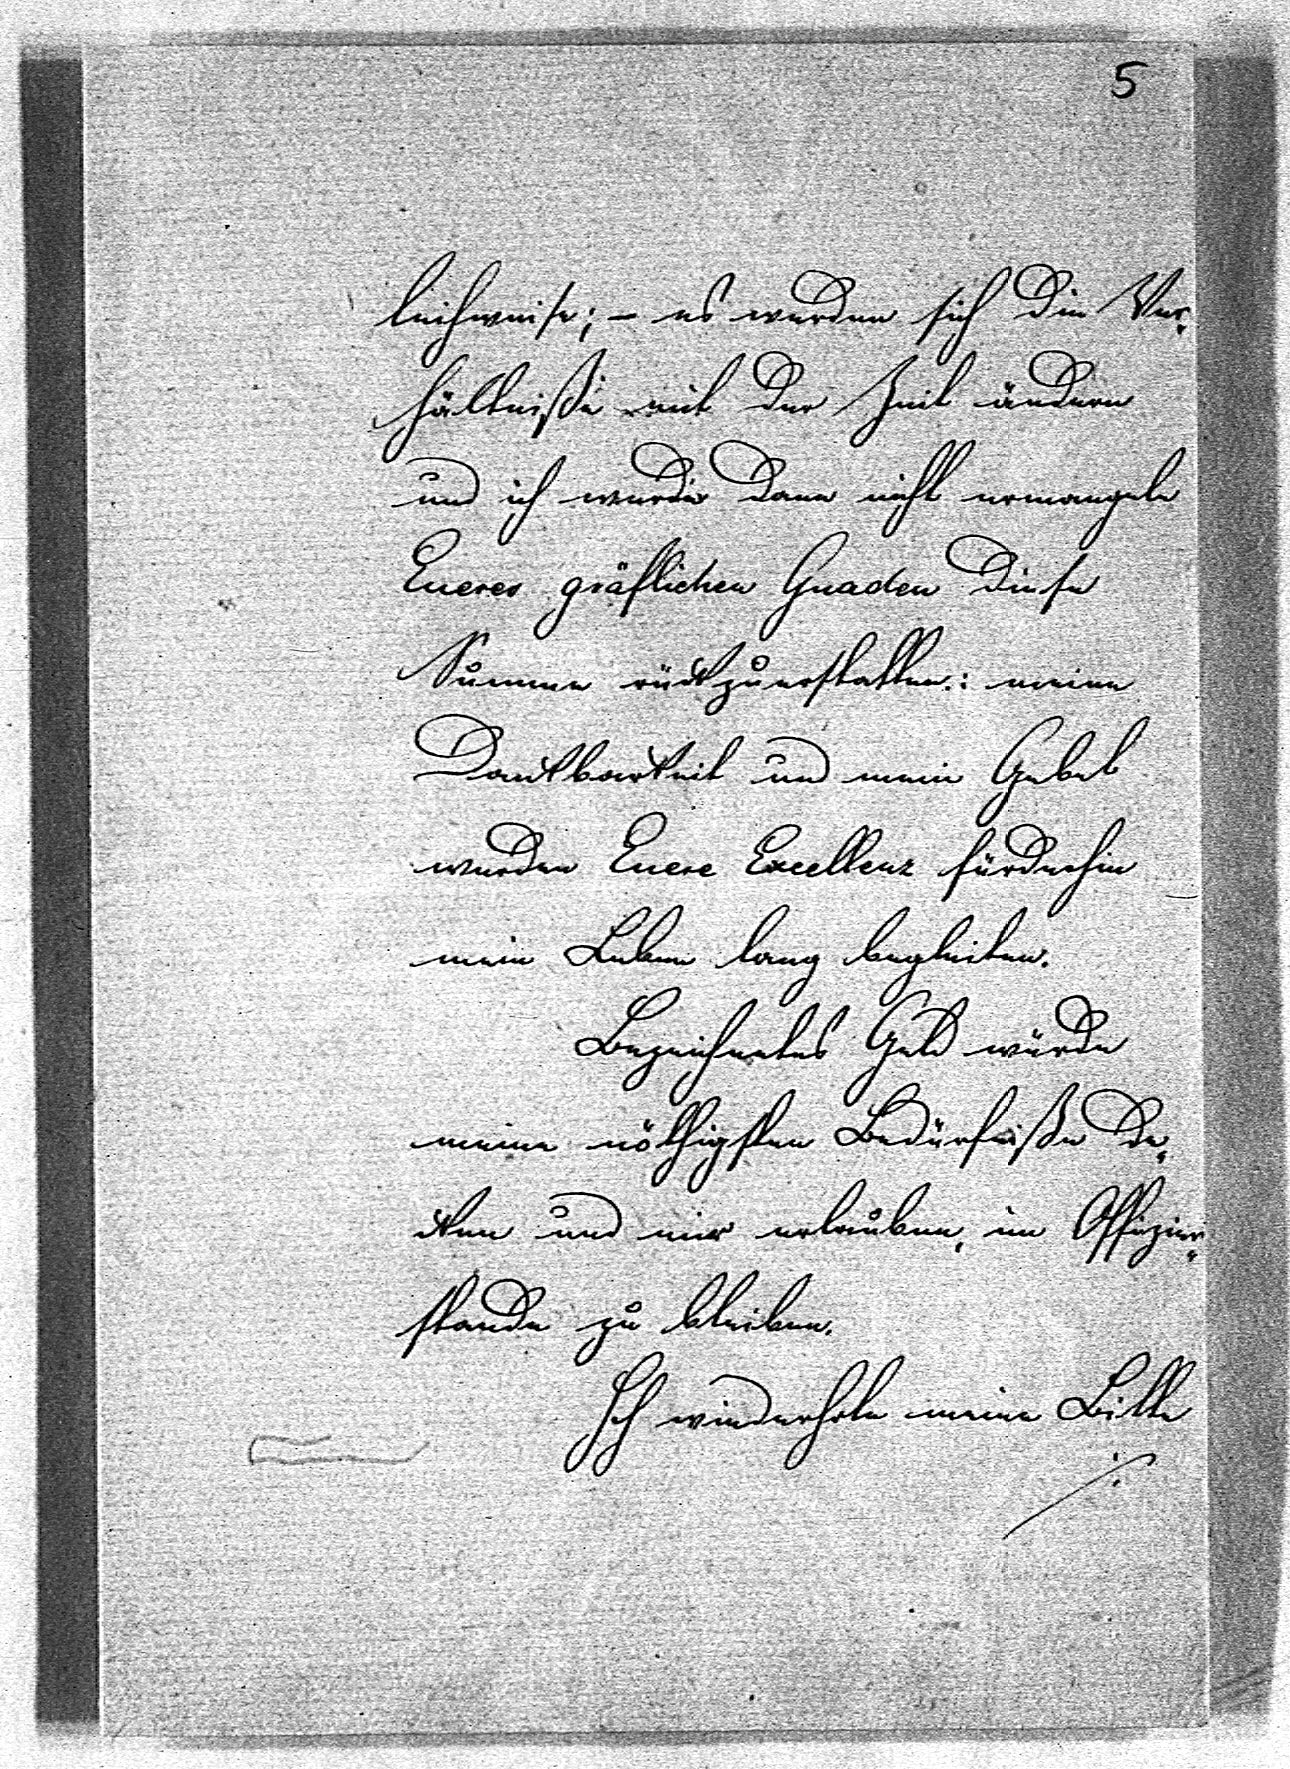 5
leihweise; – es werden sich die Ver-
hältniße mit der Zeit ändern
und ich werde dann nicht ermangeln
Eueres gräflichen Gnaden diese
Summe rückzuerstatten: meine
Dankbarkeit und mein Gebet
werden Euere Excellenz fürderhin
mein Leben lang begleiten.
Bezeichnetes Geld würde
meine nöthigsten Bedürfniße de-
cken und mir erlauben, im Offizier-
stande zu bleiben.
Ich wiederhole meine Bitte
./.